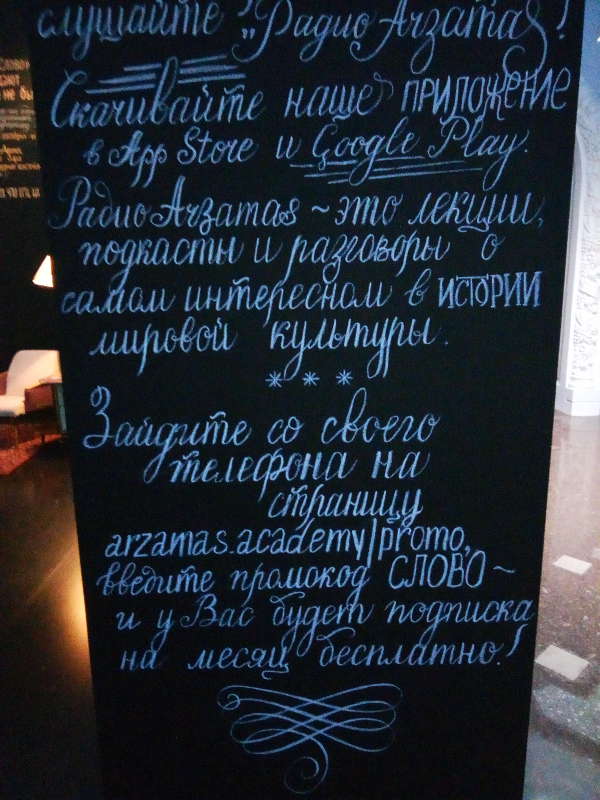 слушайте „Радио Arzamas!
Скачивайте наше ПРИЛОЖЕНИЕ
в App Store и Google Play.
Радио Arzamas ~ это лекции,
подкасты и разговоры о
самом интересном в ИСТОРИИ
мировой культуры.
* * *
Зайдите со своего
телефона на
страницу
arzamas.academy/promo,
введите промокод СЛОВО ~
и у Вас будет подписка
на месяц бесплатно!